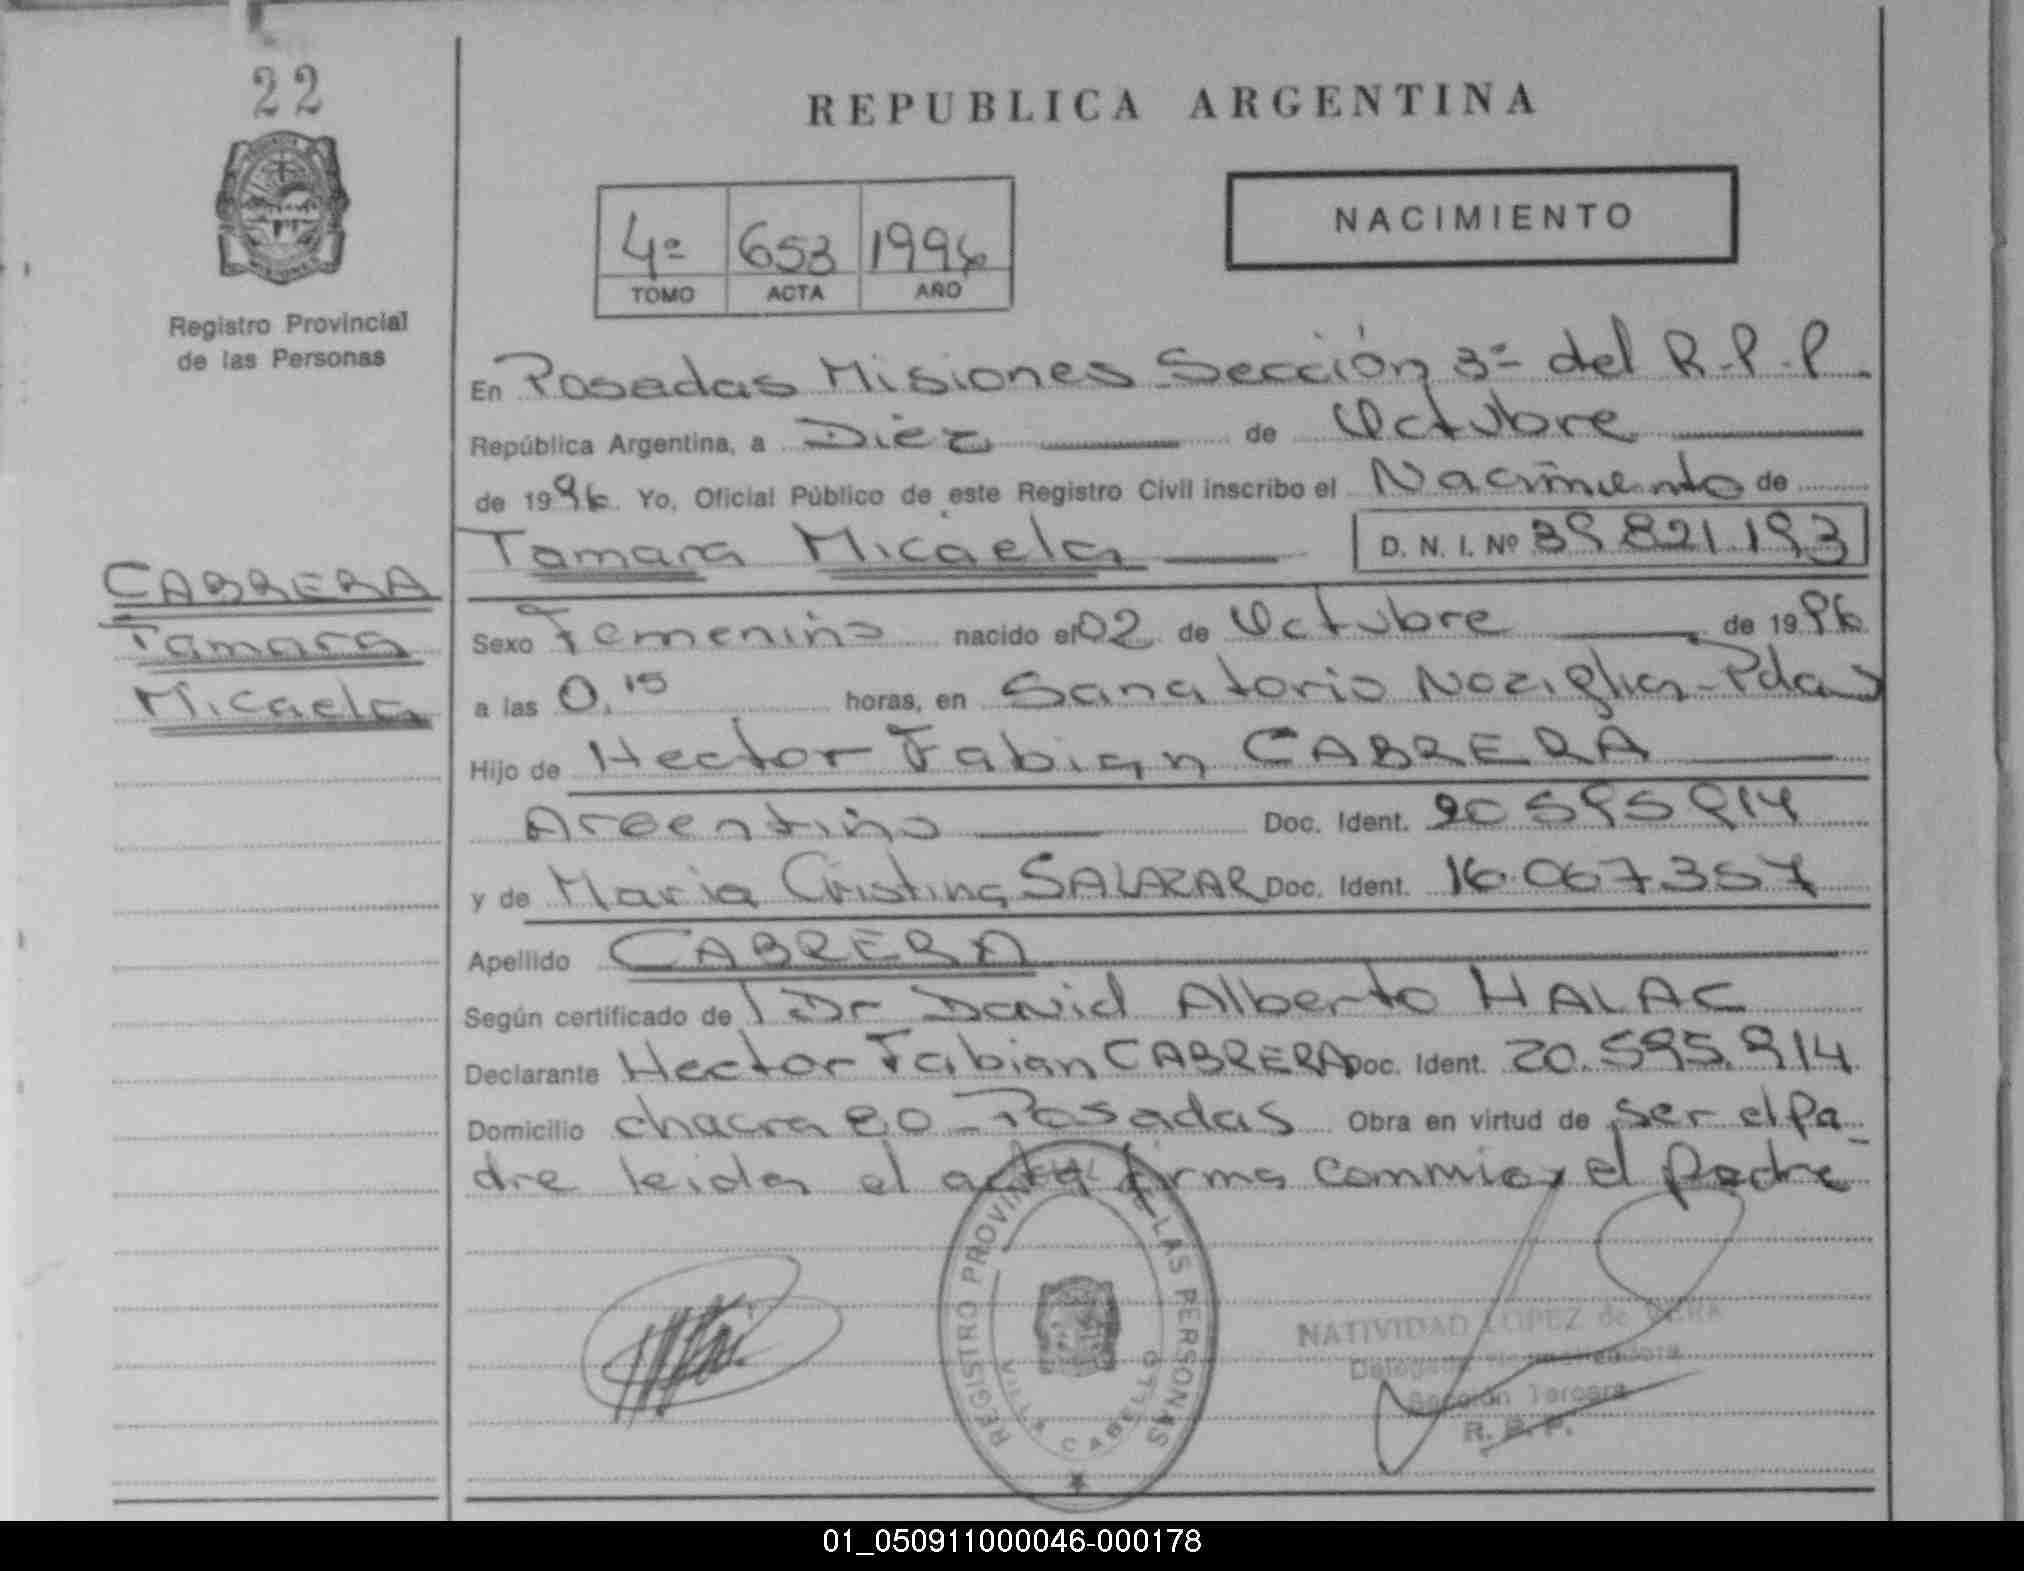 22
REPUBLICA ARGENTINA
4º 653 1996
TOMO ACTA AÑO
NACIMIENTO
Registro Provincial
de las Personas
En Posadas Misiones Sección 3ª del R.P.P.
República Argentina, a Diez de Octubre
de 1996. Yo, Oficial Público de este Registro Civil inscribo el Nacimiento de
Tamara Micaela D. N. I. Nº 39.821.193
CABRERA
Tamara
Micaela
Sexo Femenino nacido el 02 de Octubre de 1996
a las 0.15 horas, en Sanatorio Noziglia - Pdas
Hijo de Hector Fabian CABRERA
Argentino Doc. Ident. 20.595.914
y de Maria Cristina SALAZAR Doc. Ident. 16.067.357
Apellido CABRERA
Según certificado de l Dr David Alberto HALAC
Declarante Hector Fabian CABRERA Doc. Ident. 20.595.914
Domicilio chacra 80 - Posadas Obra en virtud de ser el Pa-
dre leida el acta firma conmigo el Padre
REGISTRO PROVINCIAL DE LAS PERSONAS
VILLA CABELLO
NATIVIDAD LOPEZ de
Sección Tercera
R. P. P.
01_050911000046-000178